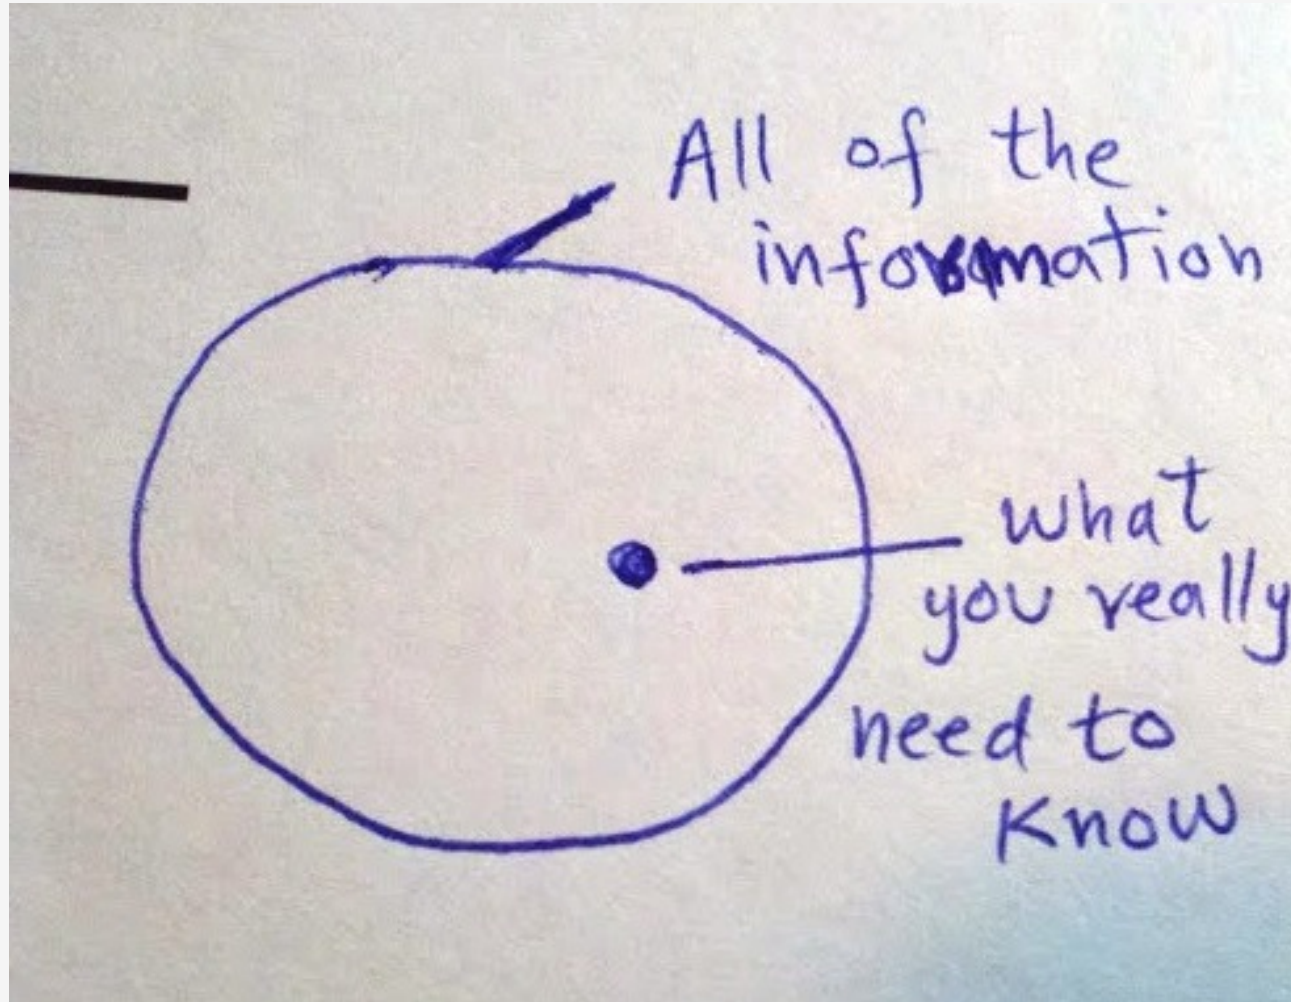 All of the
information
what
you really
need to
know